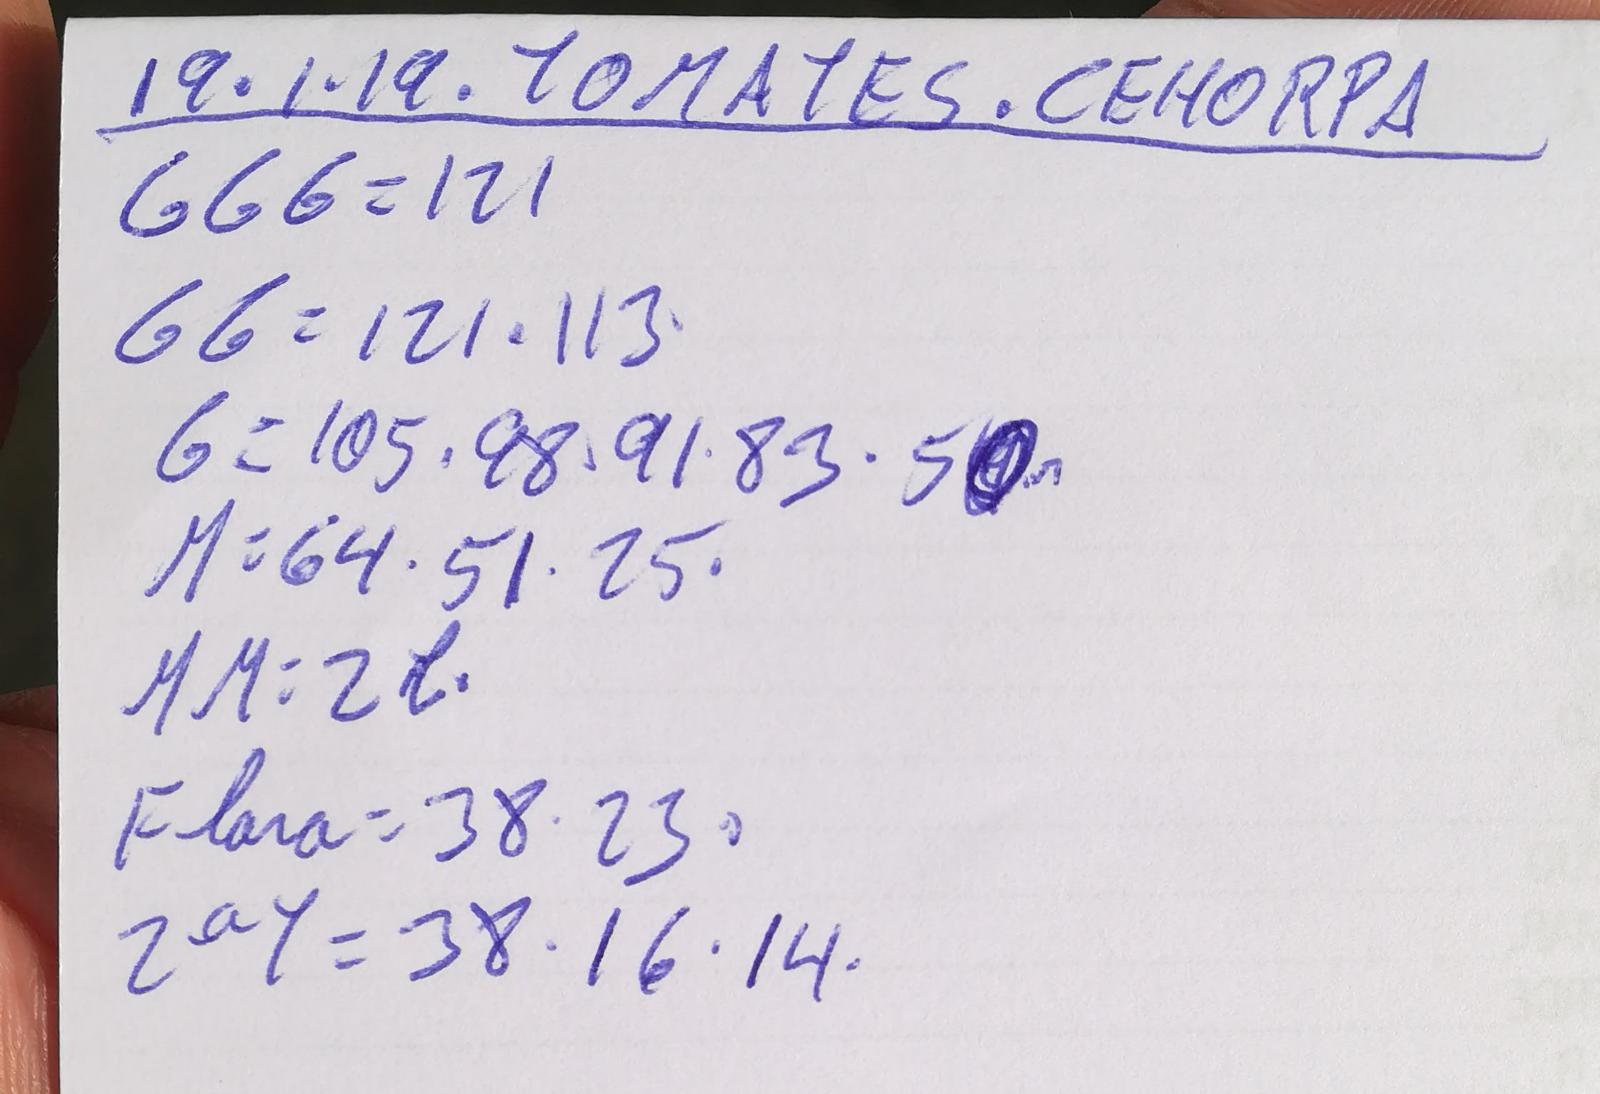 19.1.19. TOMATES. CEHORPA
GGG=121
GG=121.113.
G=105.98.91.83.50.
M=64.51.25.
MM=
Flora=38.23.
2ªT=38.16.14.